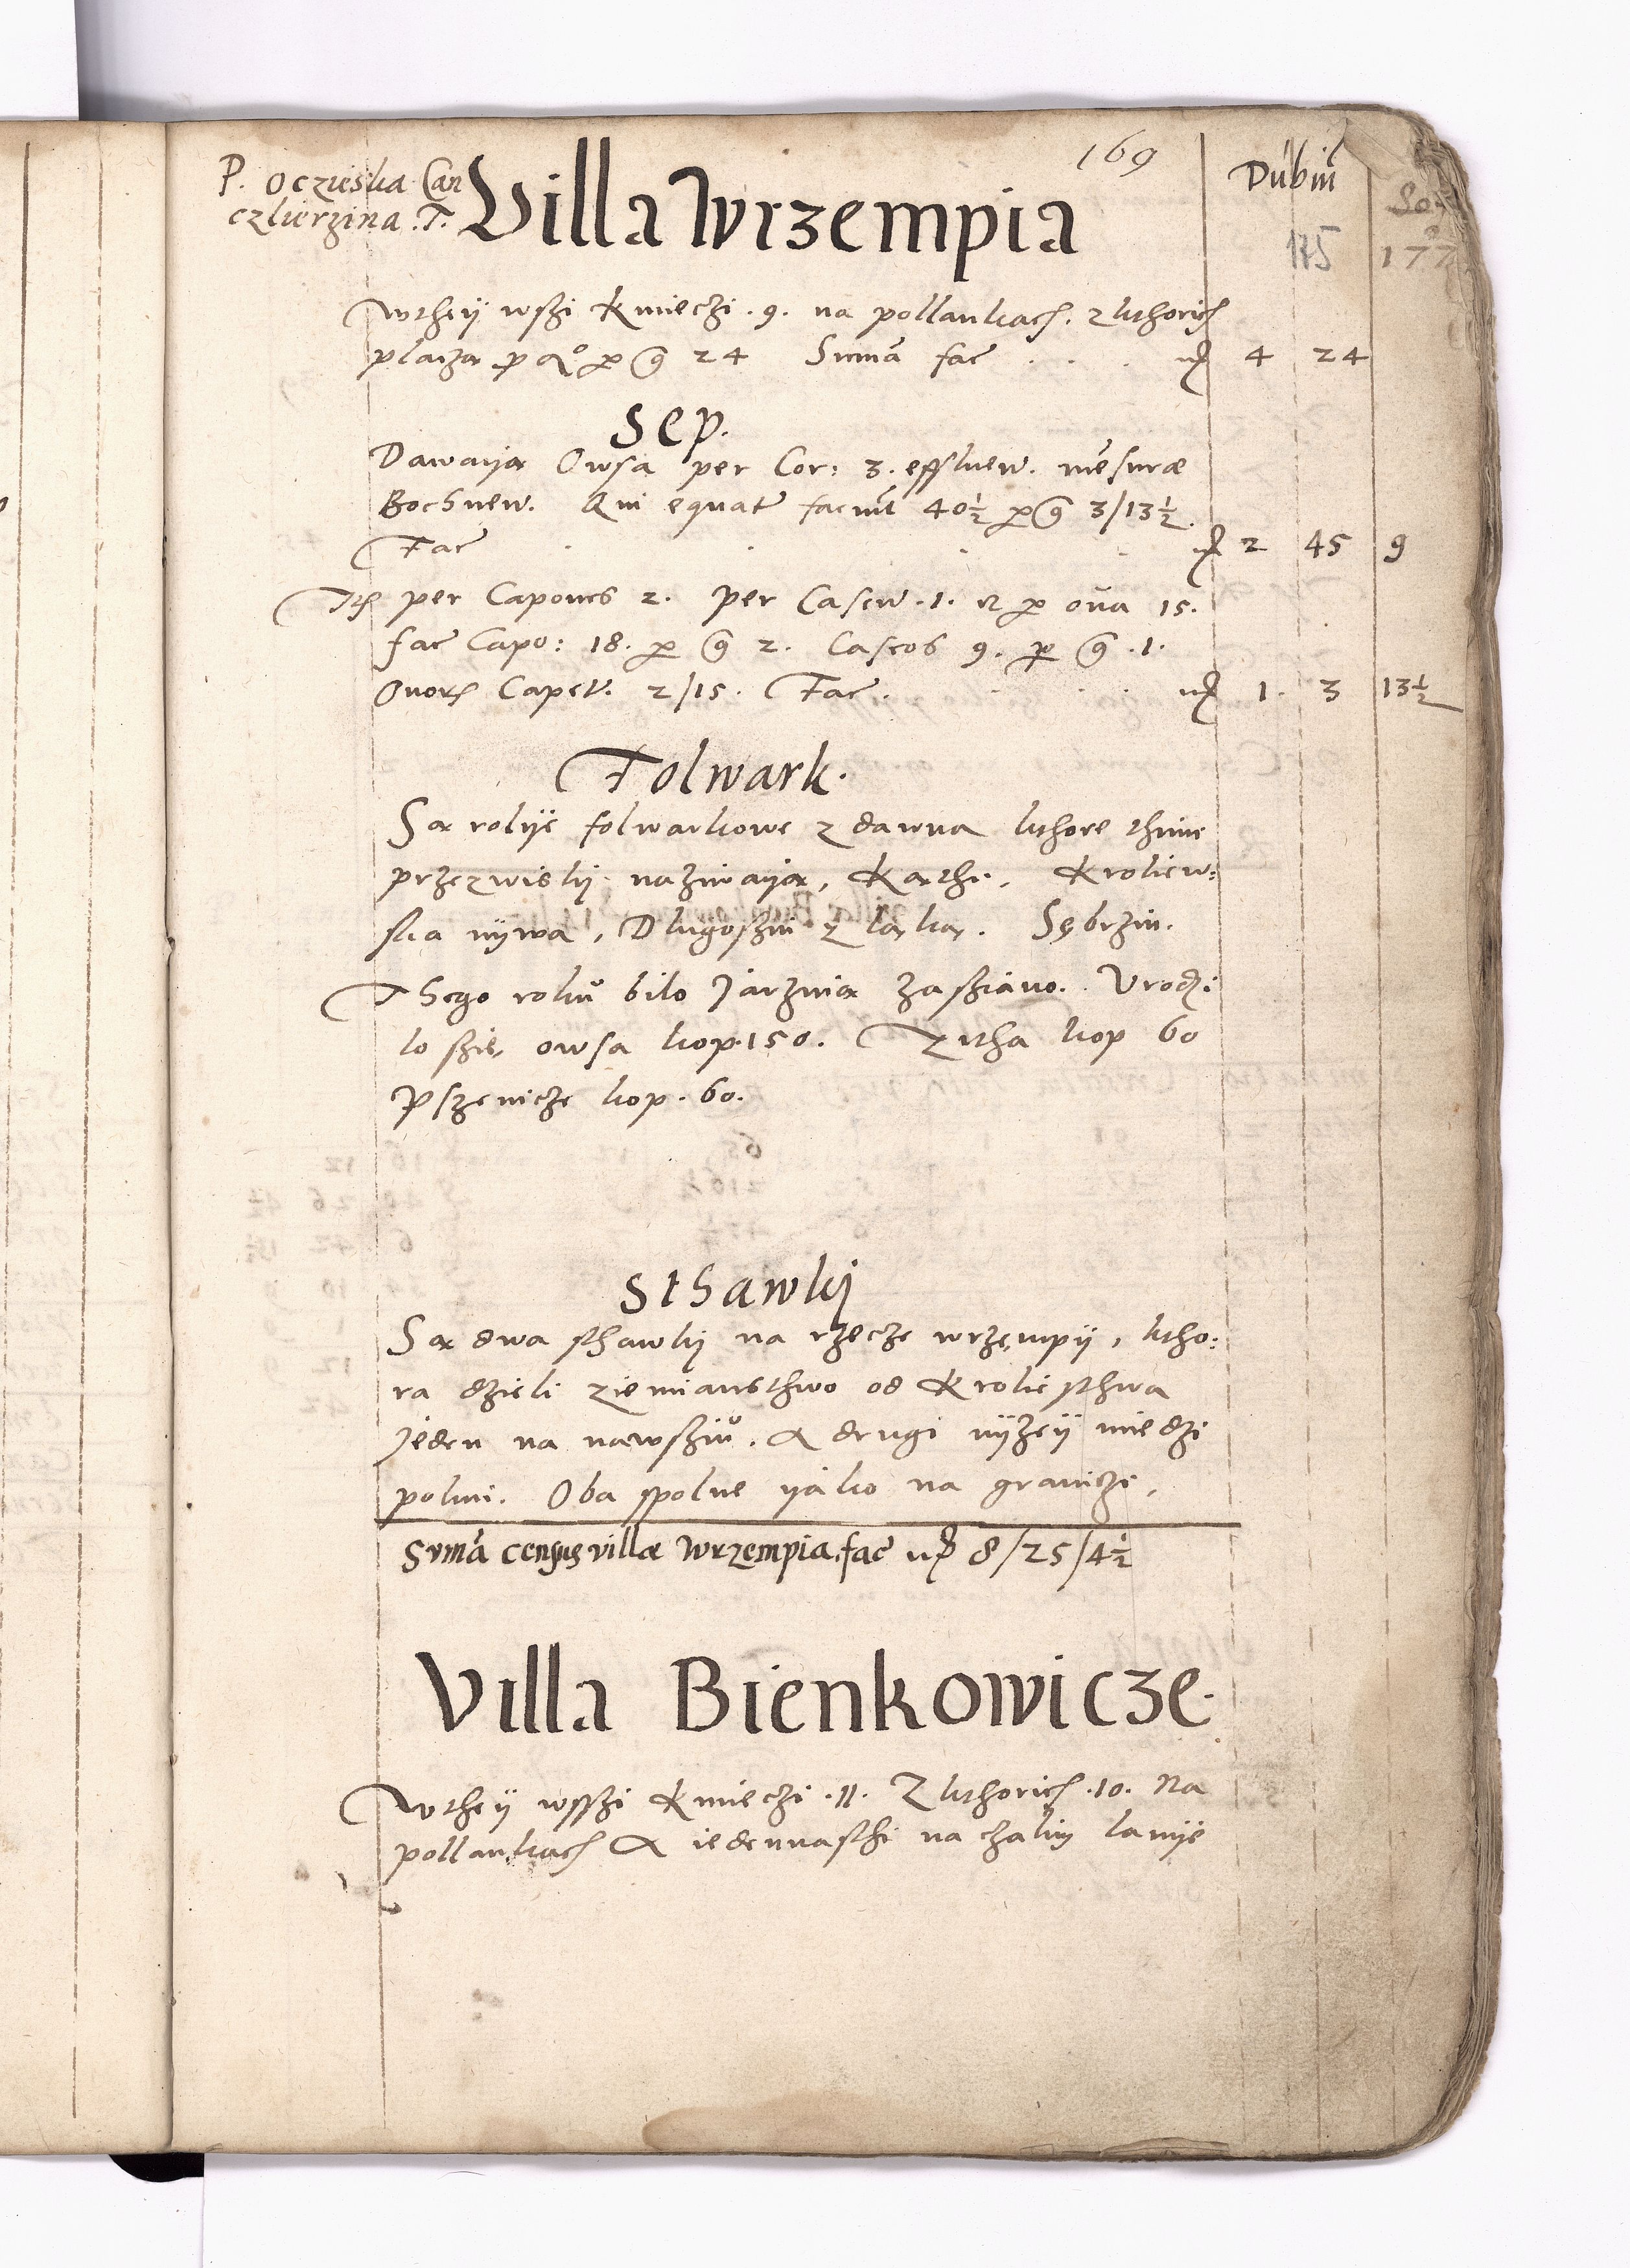 169
Dubiū
P. Oczieska Can
czlierzina .T.
Villa Wrzempia
175
177
Wtheÿ wszi Kmieczi .9. na pollankach. z kthorich
placza p Aº per g̃ 24 Sumā fac̃ . . . 4 24
Sep.
Dawaÿa Owsa per Cor: 3. effluen. mẽsuræ
Bochnen. Qui equat̃ faciūt 40½ per g̃ 3/13½.
Fac̃ . . . 2 45 9
Itẽ per Capones 2. per Caseū .1. et per oua 15.
fac̃ Capo: 18. per g̃ 2. Caseos 9. per g̃ .1.
Ouorũ Capet. 2/15. Fac̃. . . . 1. 3 13½
Folwark.
Sa rolÿe folwarkowe z dawna kthore thimi
przezwiskÿ nazÿwaÿa, Kathÿ, Kroliew:
ska nÿwa, Dlugoszin z laka. Sębrzin.
Thego rokŭ bilo Jarzina zasziano. Vrodzi
lo szie, owsa kop.150. Zitha kop 60
Pszenicze kop. 60.
Sthawkÿ
Sa dwa sthawkÿ na rzecze wrzęmpÿ, ktho:
ra dzieli ziemiansthwo od Kroliesthwa
Jeden na nawsziŭ. A drugi nÿzeÿ miedzi
polmi. Oba spolne ÿako na graniczi.
Sumā census villæ Wrzempia fac̃ 8/25/4½
Villa Bienkowicze.
Wtheÿ wsszi Kmieczi .11. Z kthorich .10. Na
pollankach A iedennasthi na czalim lanÿe